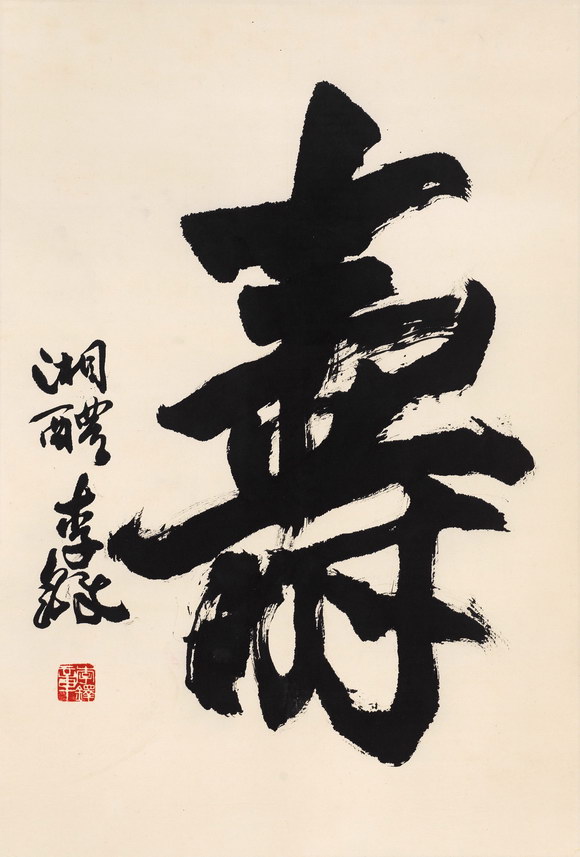 壽
湘醴李鐸
李鐸